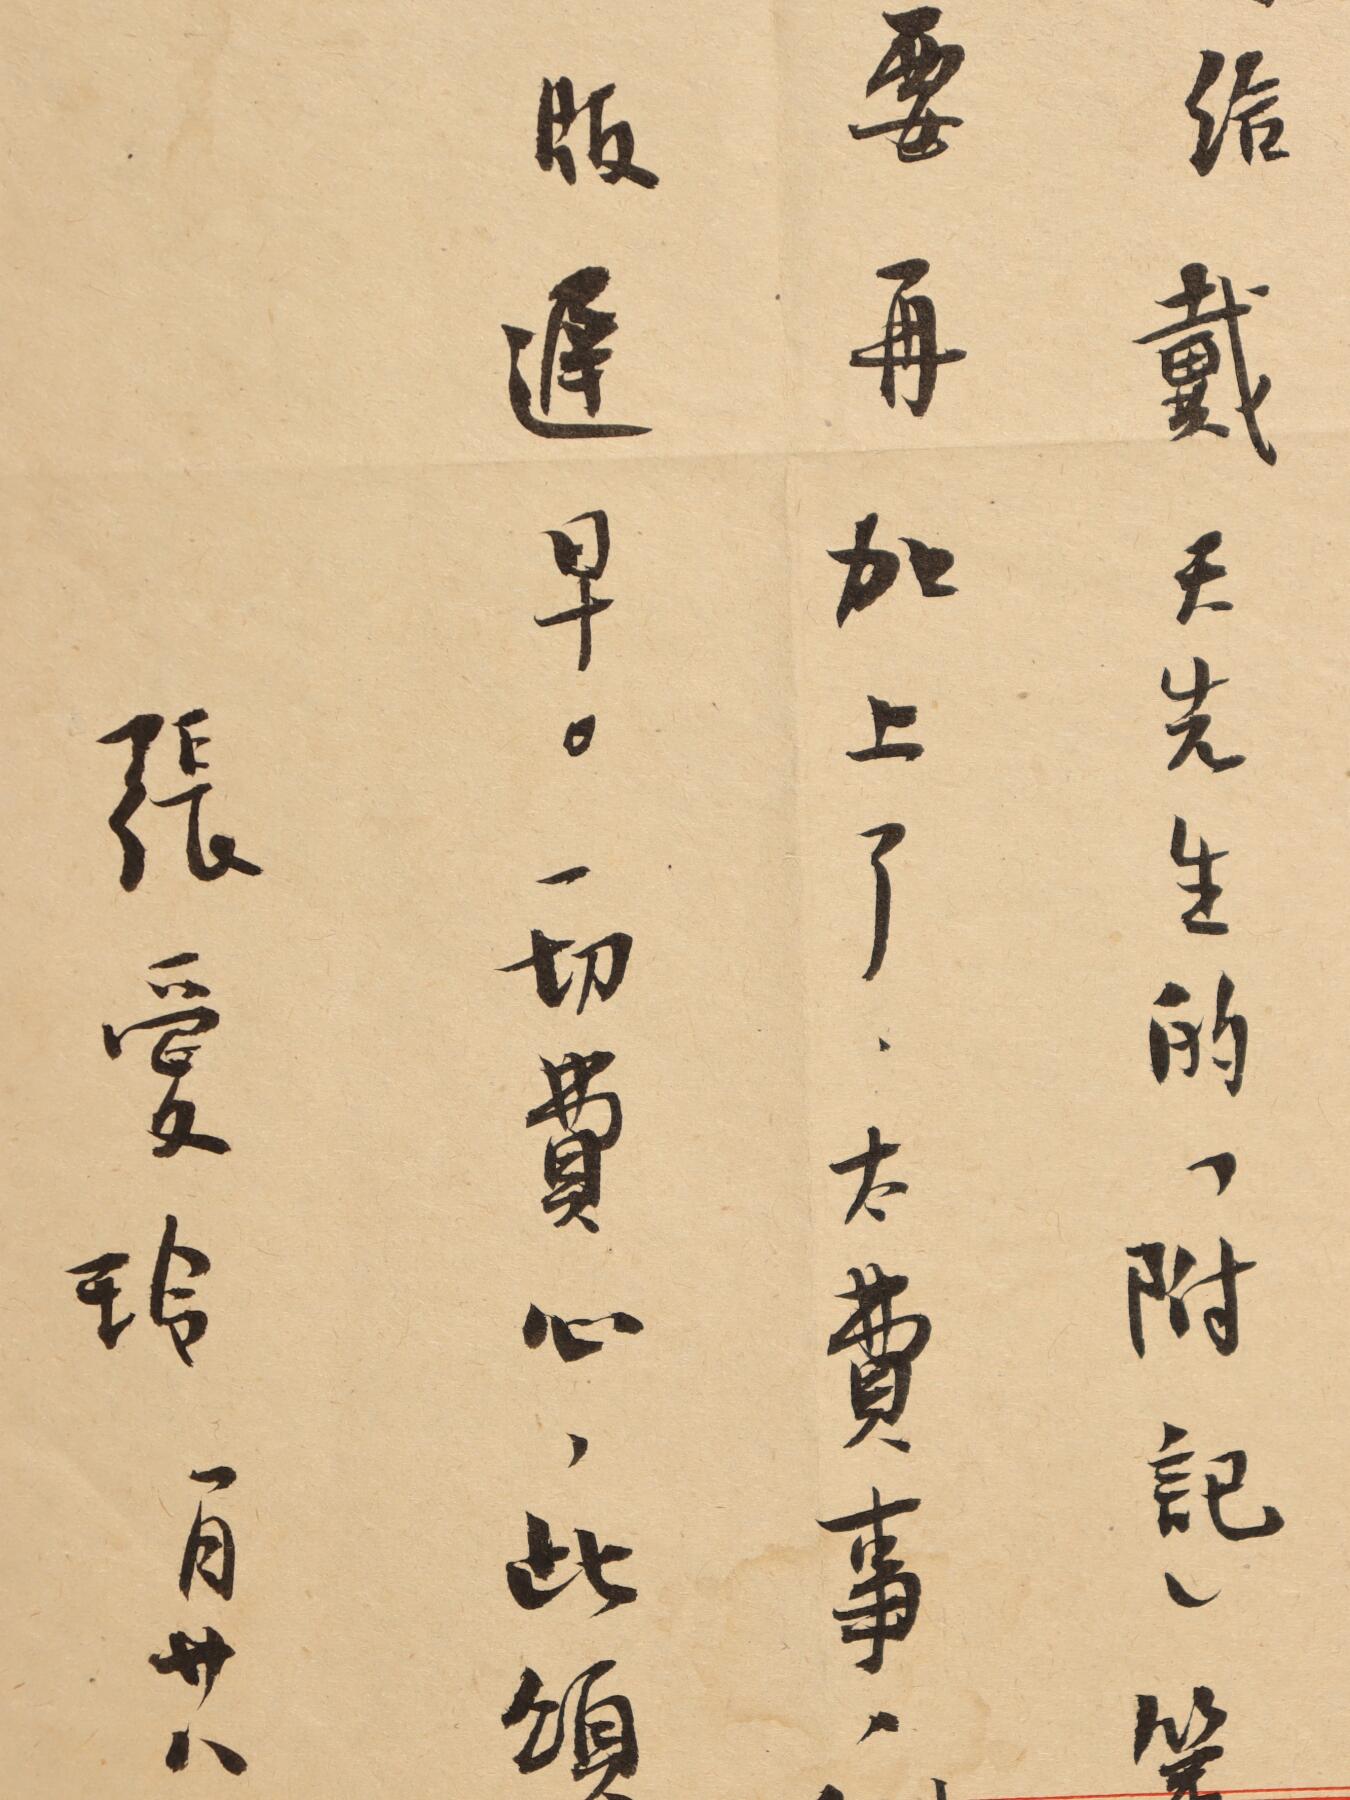 給戴天先生的「附記」
要再加上了．太費事，
版遲早。一切費心，此頌
張愛玲 一月廿八